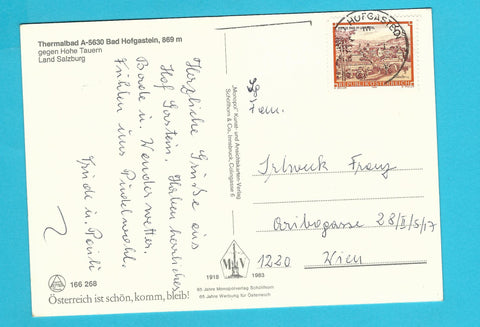 Thermalbad A-5630 Bad Hofgastein, 869 m
gegen Hohe Tauern
Land Salzburg
Herzliche Grüße aus
Hof Gastein. Haben herrliches
Bade u. Wanderwetter.
Fühlen uns Pudelwohl.
Friede u. Pauli
166 268
Österreich ist schön, komm, bleib!
„Monopol" Kunst- und Ansichtskarten-Verlag
Schöllhorn & Co., Innsbruck, Colingasse 6
HOFGASTEIN
REPUBLIK ÖSTERREICH
Fam.
Franz
Aribogasse 28/II/5/17
1220 Wien
1918 1983
65 Jahre Monopolverlag Schöllhorn
65 Jahre Werbung für Österreich